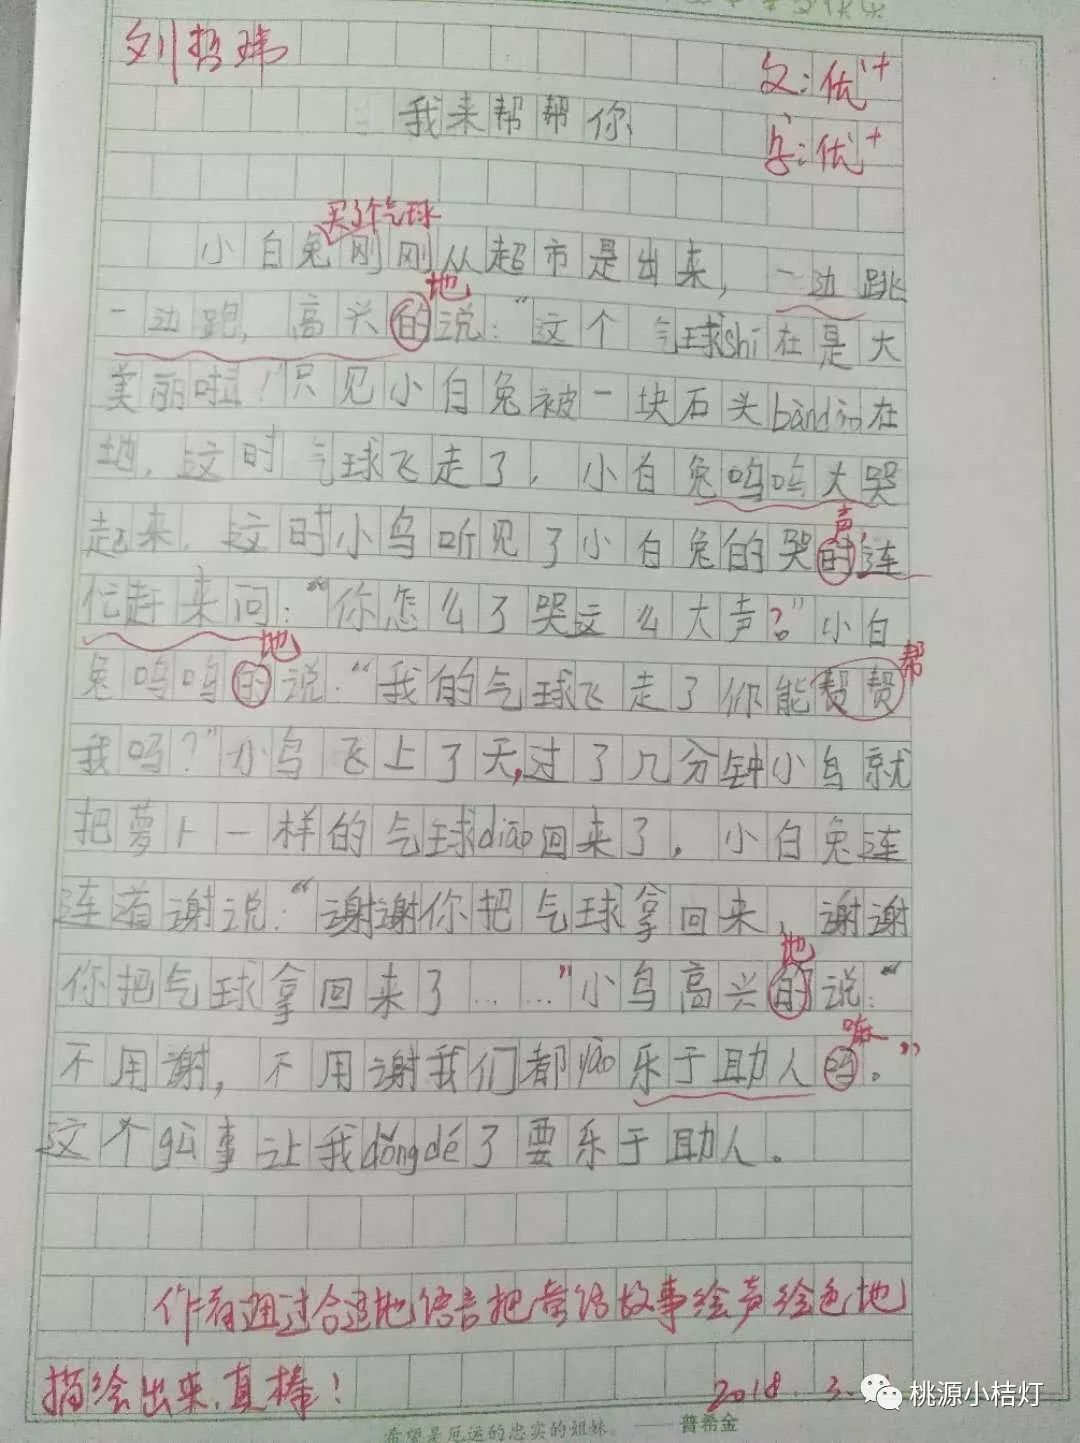 刘哲玮
文:优++
我来帮帮你
字:优+
买了个气球
小白兔刚刚从超市是出来,一边跳
地
一边跑,高兴的说:“这个气球shi在是大
美丽啦!”只见小白兔被一块石头bàndǎo在
地,这时气球飞走了,小白兔呜呜大哭
声
起来,这时小鸟听见了小白兔的哭的连
忙赶来问:“你怎么了哭这么大声?”小白
地
帮
兔呜呜的说:“我的气球飞走了你能帮帮
我吗?”小鸟飞上了天,过了几分钟小鸟就
把萝卜一样的气球diāo回来了,小白兔连
连着谢说:“谢谢你把气球拿回来,谢谢
地
你把气球拿回来了……”小鸟高兴的说:“
嘛
不用谢,不用谢我们都yào乐于助人吗。”
这个gù事让我dǒngdé了要乐于助人。
作者通过合适地语言把童话故事绘声绘色地
描绘出来,真棒!
2018.3.
桃源小桔灯
希望是厄运的忠实的姐妹。——普希金